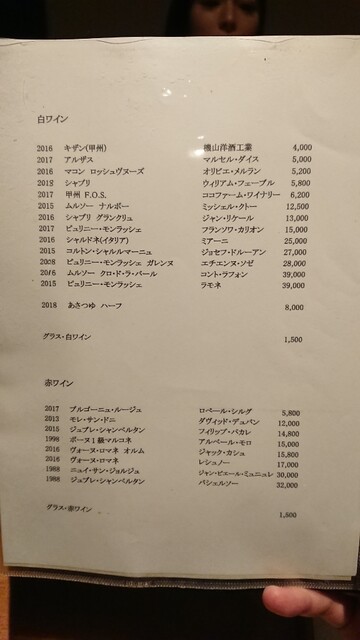 白ワイン
2016 キザン(甲州) 機山洋酒工業 4,000
2017 アルザス マルセル・ダイス 5,000
2016 マコン ロッシュヴヌーズ オリビエ・メルラン 5,200
2018 シャブリ ウィリアム・フェーブル 5,800
2017 甲州 F.O.S. ココファーム・ワイナリー 6,200
2015 ムルソー ナルボー ミッシェル・クトー 12,500
2016 シャブリ グランクリュ ジャン・リケール 13,000
2017 ピュリニー・モンラッシェ フランソワ・カリオン 15,000
2016 シャルドネ(イタリア) ミアーニ 25,000
2015 コルトン・シャルルマーニュ ジョセフ・ドルーアン 27,000
2008 ピュリニー・モンラッシェ ガレンヌ エチエンヌ・ソゼ 28,000
2016 ムルソー クロ・ド・ラ・バール コント・ラフォン 39,000
2015 ピュリニー・モンラッシェ ラモネ 39,000
2018 あさつゆ ハーフ 8,000
グラス・白ワイン 1,500
赤ワイン
2017 ブルゴーニュ・ルージュ ロベール・シルグ 5,800
2013 モレ・サン・ドニ ダヴィッド・デュバン 12,000
2015 ジュブレ・シャンベルタン フィリップ・パカレ 14,800
1998 ボーヌ1級マルコネ アルベール・モロ 15,000
2016 ヴォーヌ・ロマネ オルム ジャック・カシュ 15,800
2016 ヴォーヌ・ロマネ レシュノー 17,000
1988 ニュイ・サン・ジョルジュ ジャン・ピエール・ミュニュレ 30,000
1988 ジュブレ・シャンベルタン バシェルソー 32,000
グラス・赤ワイン 1,500